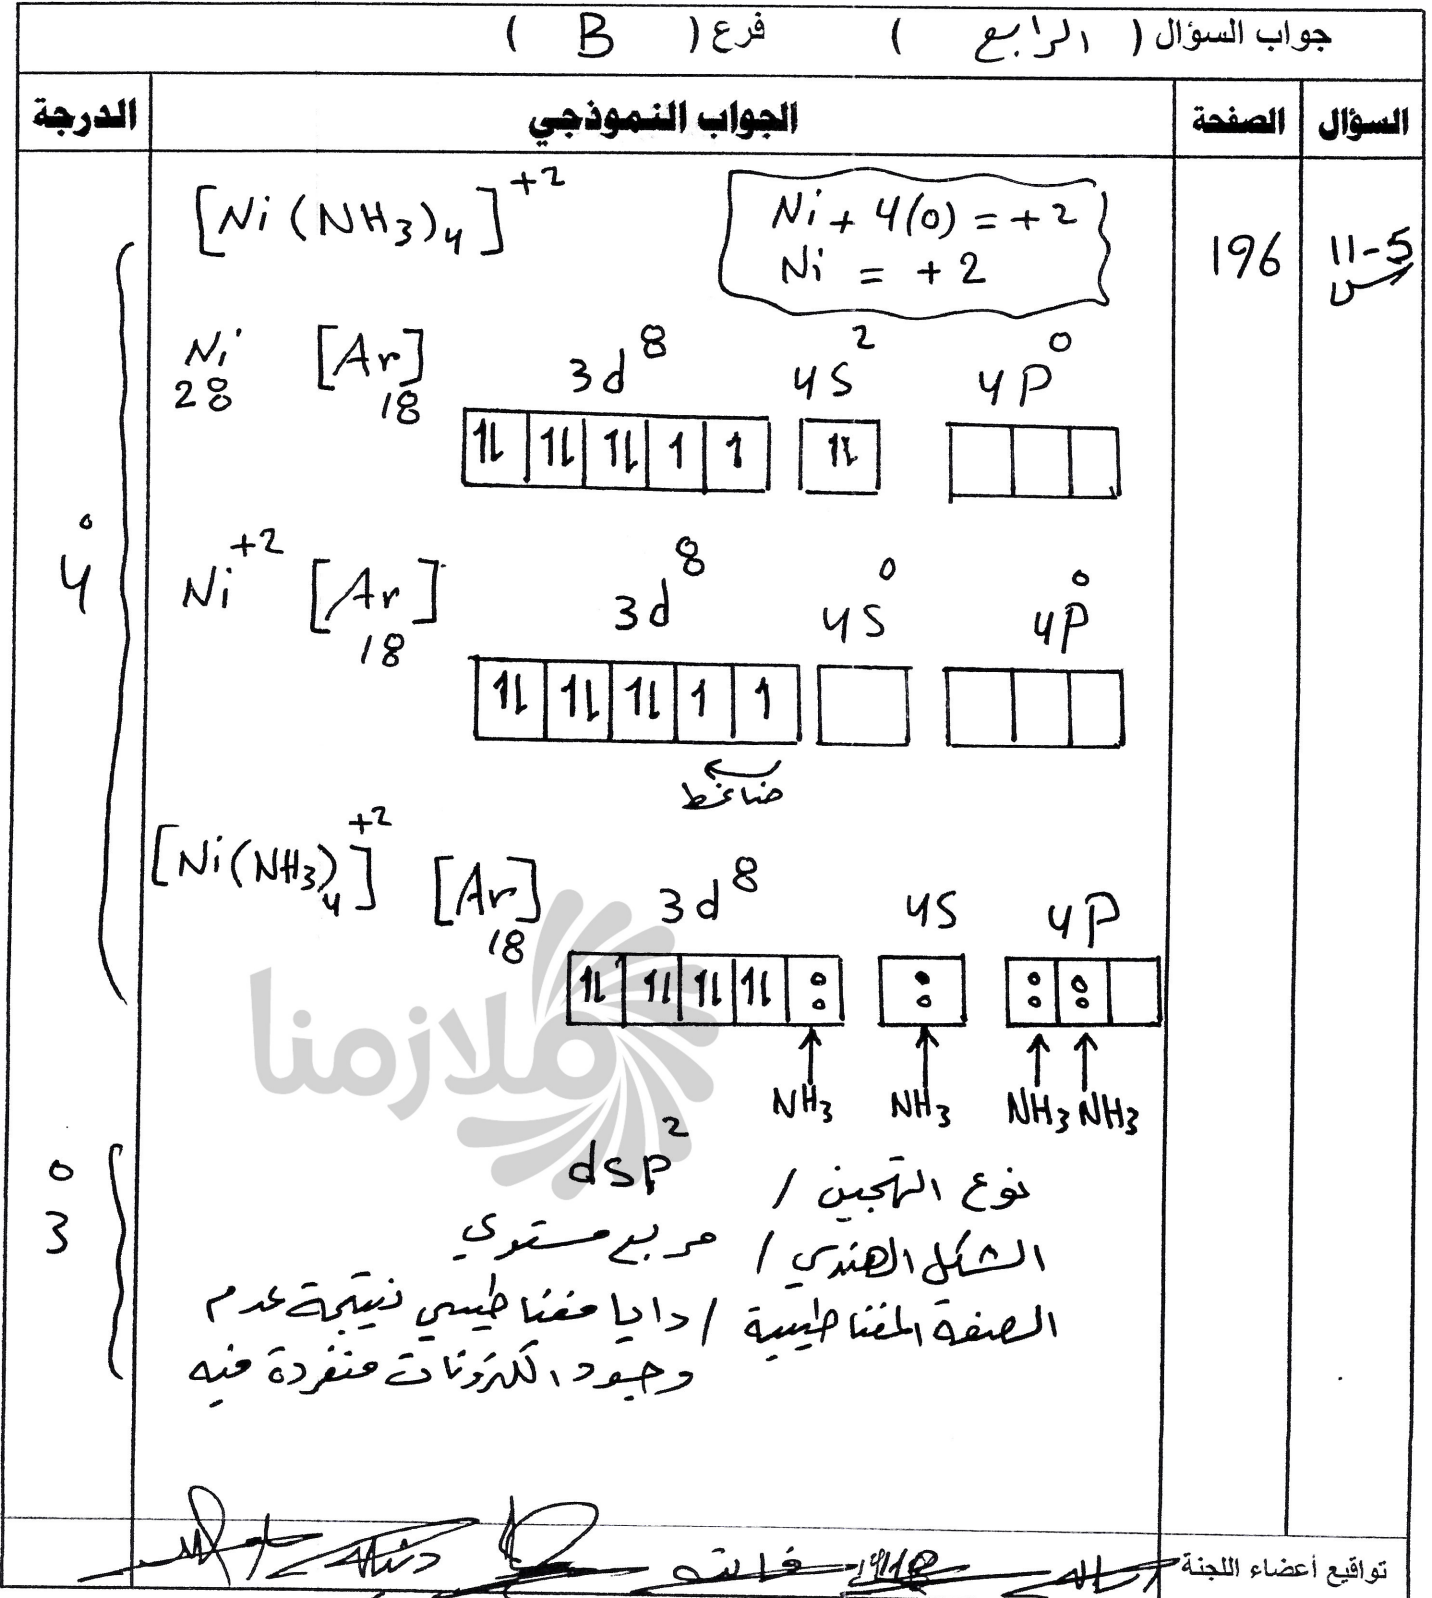 جواب السؤال ( الرابع ) فرع ( B )
السؤال الصفحة الجواب النموذجي الدرجة
11-5 س 196
[Ni(NH3)4]+2
Ni + 4(0) = +2
Ni = +2
Ni 28 [Ar] 18 3d8 4S2 4P0
1l 1l 1l 1 1 1l
Ni+2 [Ar] 18 3d8 4S0 4P0
1l 1l 1l 1 1
ضاغط
4
[Ni(NH3)4]+2 [Ar] 18 3d8 4S 4P
1l 1l 1l 1l
NH3 NH3 NH3 NH3
ملازمنا
نوع التهجين / dsp2
الشكل الهندسي / مربع مستوي
3
الصفة المغناطيسية / دايا مغناطيسي نتيجة عدم
وجود الكترونات منفردة فيه
تواقيع أعضاء اللجنة